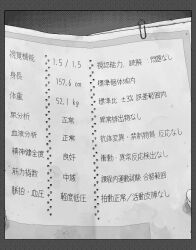 視覚機能 1.5 / 1.5 視認能力、読解 問題なし
身長 157.6 cm 標準個体域内
体重 52.1 kg 標準比 ±3% 誤差範囲内
尿分析 正常 異常排出物なし
血液分析 正常 抗体変異・禁制物質 反応なし
精神健全度 良好 衝動・異常反応検出なし
筋力指数 中域 課程内運動試験 合格範囲
脈拍・血圧 軽度低圧 拍動正常／活動支障なし